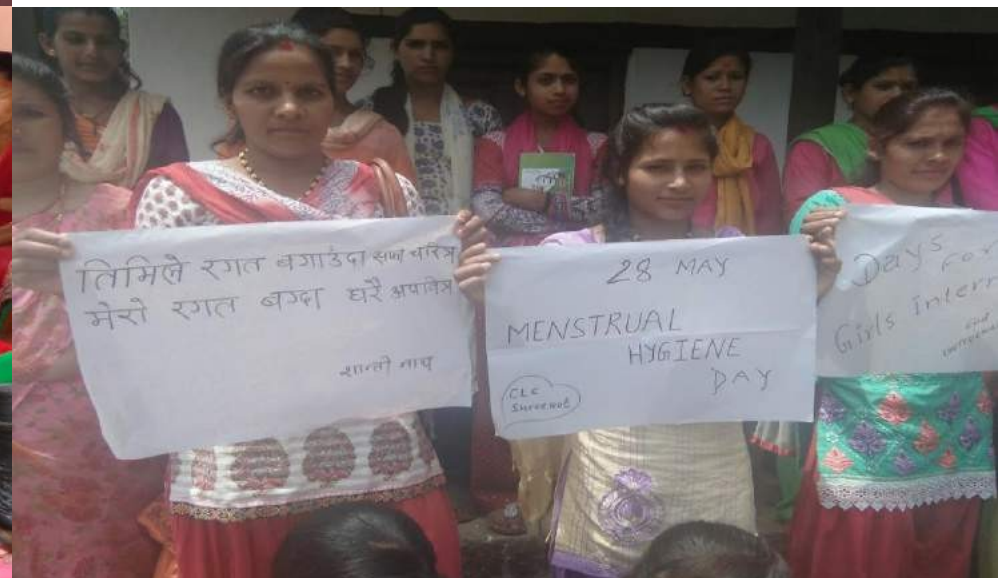 तिमिले रगत बगाउंदा सच्चा चरित्र
मेरो रगत बग्दा घरै अपवित्र
शान्ती नाथ
28 MAY
MENSTRUAL
HYGIENE
DAY
CLC
Days For
Girls intern